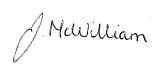 J. McWilliam